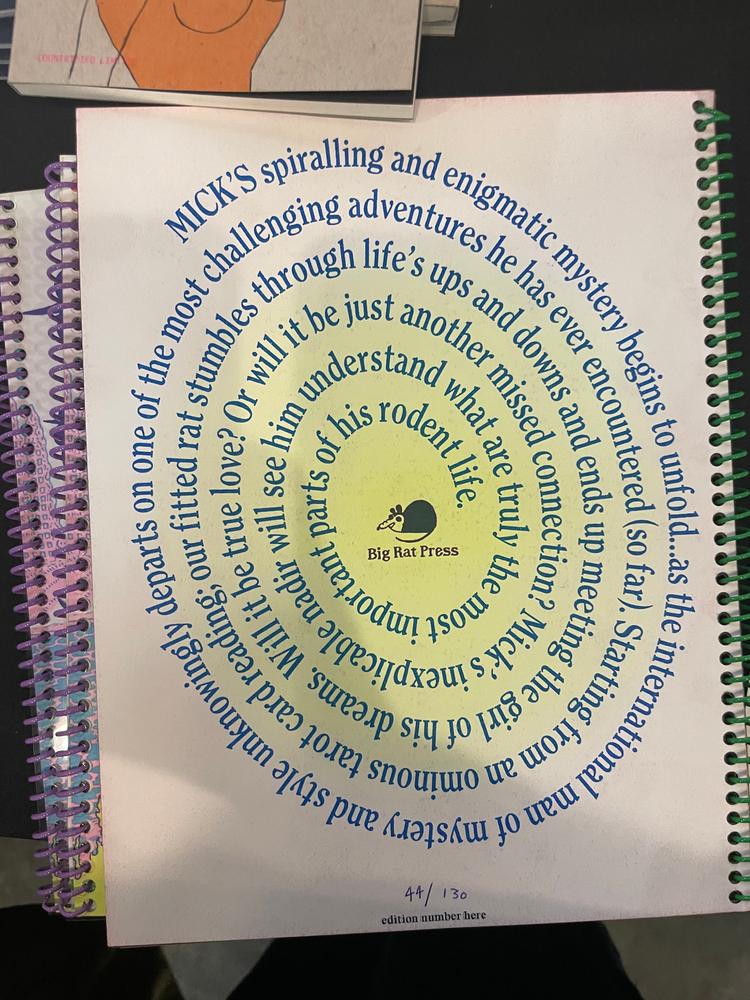 MICK'S spiralling and enigmatic mystery begins to unfold...as the international man of mystery and style unknowingly departs on one of the most challenging adventures he has ever encountered (so far). Starting from an ominous tarot card reading, our fitted rat stumbles through life's ups and downs and ends up meeting the girl of his dreams. Will it be true love? Or will it be just another missed connection? Mick's inexplicable nadir will see him understand what are truly the most important parts of his rodent life.
Big Rat Press
44/130
edition number here